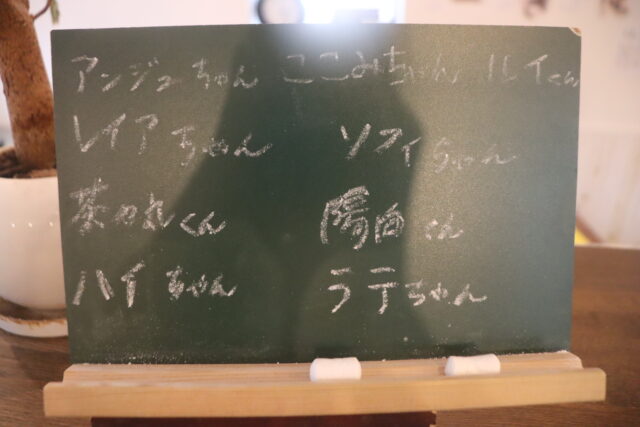 アンジュちゃん ここみちゃん ルイくん
レイアちゃん ソフィちゃん
茶の丸くん 陽向くん
ハイちゃん ラテちゃん